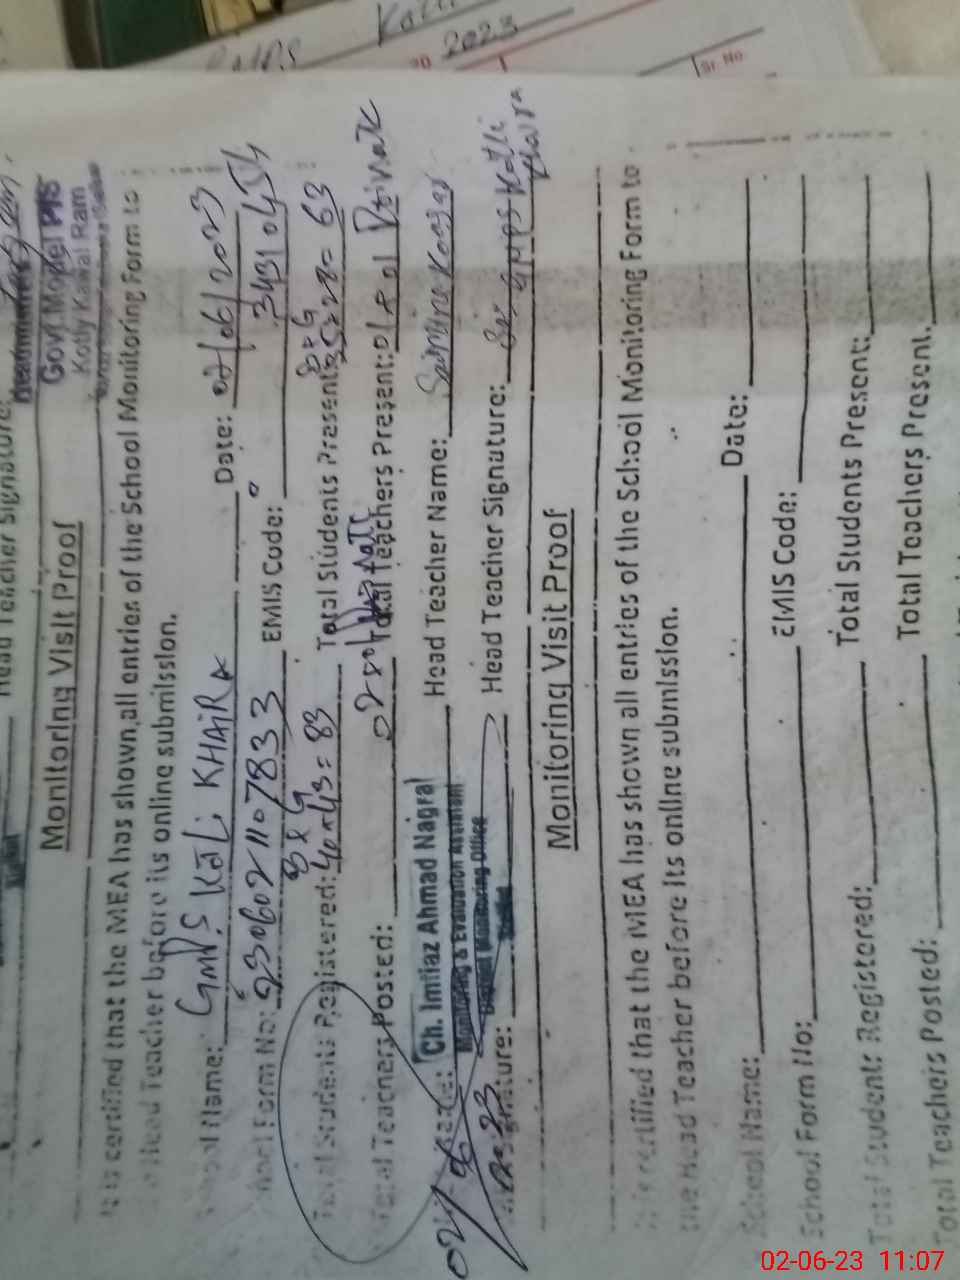 2023
Sr. No.
Head Teacher Signature:
Govt. Model P/S
Kotly Kawal Ram
Monitoring Visit Proof
It is certified that the MEA has shown all entries of the School Monitoring Form to
Head Teacher before its online submission.
School Name: GMPS KOTLI KHAIRA Date: 02/06/2023
School Form No: 230602110783 3 EMIS Code: 34310454
B + G B + G
Total Students Registered: 40+43=83 Total Students Present: = 63
Total Teachers Posted: 02 Total Teachers Present: 01 + 01 Private
MEA Name: Ch. Imtiaz Ahmad Nagra Head Teacher Name: Kausar
Monitoring & Evaluation Assistant
District Monitoring Office
Signature: Head Teacher Signature: GMPS Kotli
Khaira
Monitoring Visit Proof
It is certified that the MEA has shown all entries of the School Monitoring Form to
the Head Teacher before its online submission.
School Name: Date:
School Form No: EMIS Code:
Total Students Registered: Total Students Present:
Total Teachers Posted: Total Teachers Present:
02-06-23 11:07